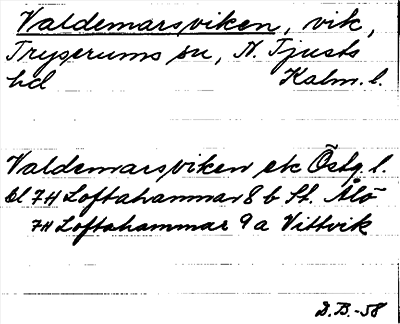 Valdemarsviken, vik,
Tryserums sn, N. Tjusts
hd Kalm. l.
Valdemarsviken ek Östg. l.
bl 7H Loftahammar 8 b St. Älö
7H Loftahammar 9 a Vittvik
D.B.-58